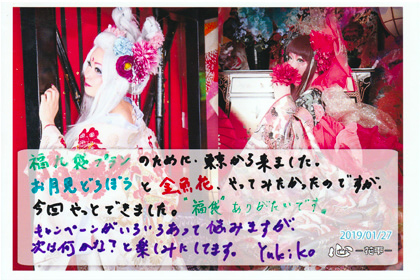 福九袋プランのために、東京から来ました。
お月見どろぼうと金魚花、やってみたかったのですが、
今回やっとできました。"福袋"ありがたいです。
キャンペーンがいろいろあって悩みますが、
次は何かな?と楽しみにしてます。 Yukiko
2019/01/27
心-花雫-